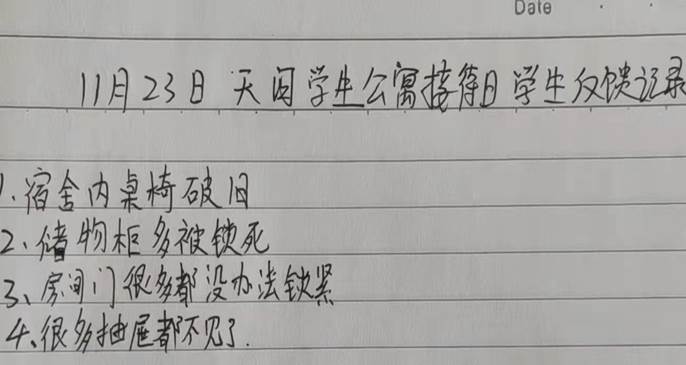 Date
11月23日 天阅学生公寓接待日 学生反馈记录
1.宿舍内桌椅破旧
2、储物柜多被锁死
3、房间门很多都没办法锁紧
4、很多抽屉都不见了.